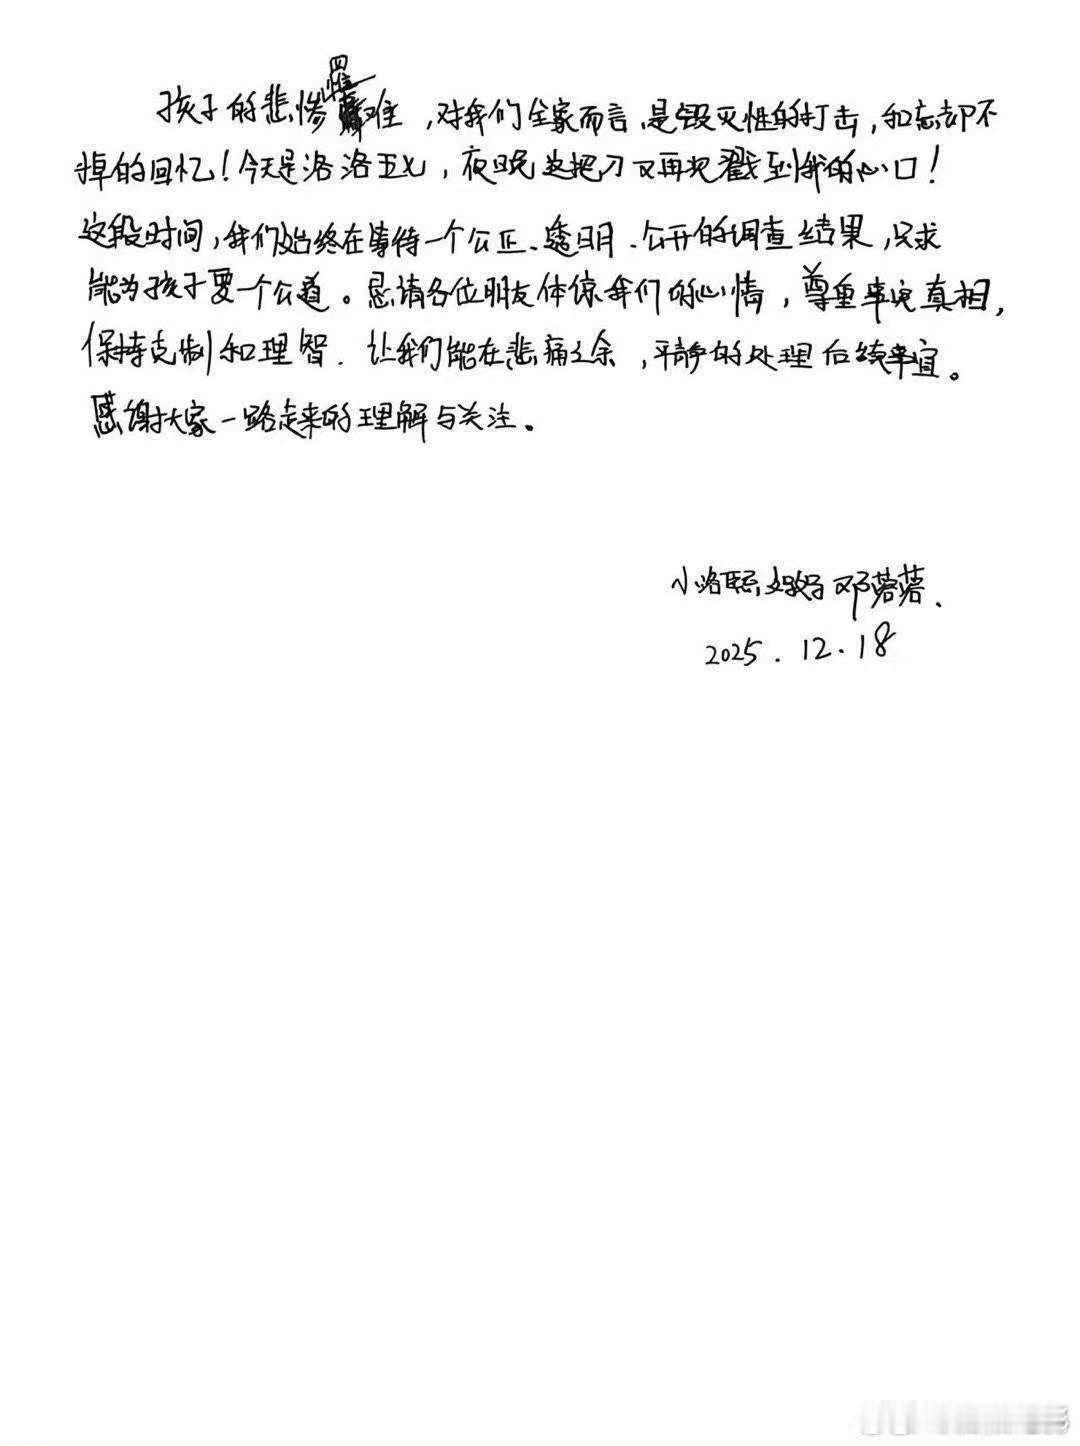 孩子的悲惨罹难，对我们全家而言，是毁灭性的打击，和忘却不
掉的回忆！今天是洛洛五七，夜晚这把刀又再次戳到我的心口！
这段时间，我们始终在等待一个公正、透明、公开的调查结果，只求
能为孩子要一个公道。恳请各位朋友体谅我们的心情，尊重事实真相，
保持克制和理智．让我们能在悲痛之余，平静的处理后续事宜。
感谢大家一路走来的理解与关注。
小洛熙妈妈邓蓉蓉．
2025．12．18